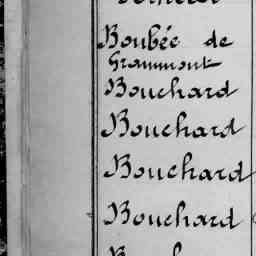 Boubée de
Grammont
Bouchard
Bouchard
Bouchard
Bouchard